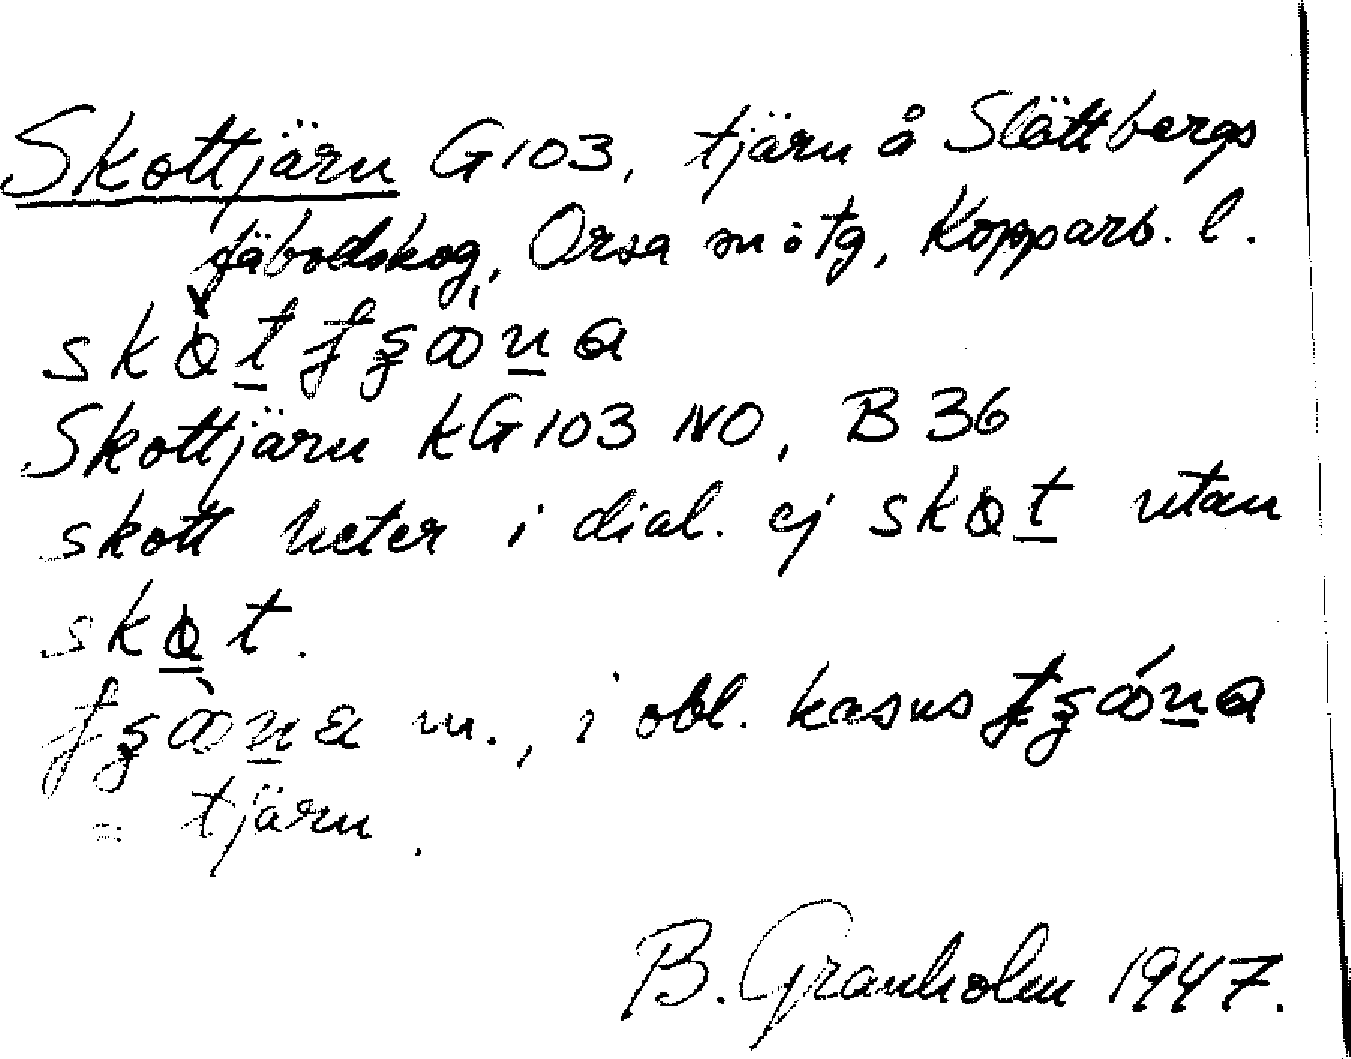 Skottjärn G 103, tjärn å Slättbergs
fäbodskog, Orsa m o tg, Kopparb. l.
Skottjärn KG 103 NO, B 36
skott heter i dial. ej skọt utan
skọt.
m., i obl. kasus
= tjärn.
B. Granholm 1947.